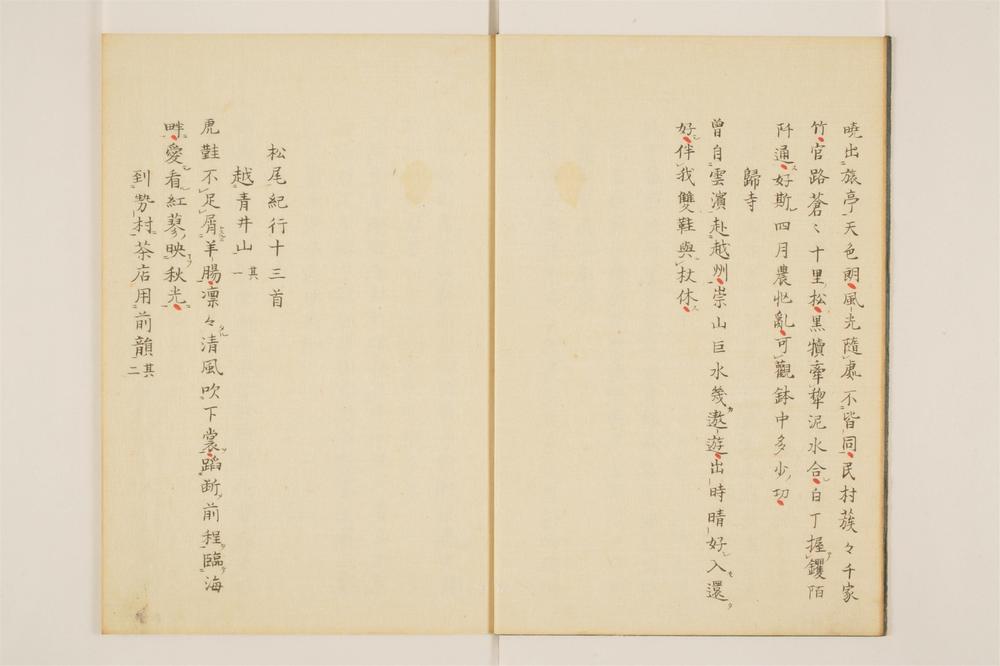 曉出旅亭天色朗風光隨處不皆同民村蔟々千家
竹官路蒼〻十里松黒犢牽犂泥水合白丁握钁陌
阡通好斯四月農忙亂可觀鉢中多少功
歸寺
曾自雲濱赴越州崇山巨水幾遨遊出時晴好入還
好伴我雙鞋與杖休
松尾紀行十三首
越青井山 其一
虎𪔛不足屑羊腸凛々清風吹下裳蹈斷前程臨海
畔愛看紅蓼映秋光
到勢村茶店用前韻 其二